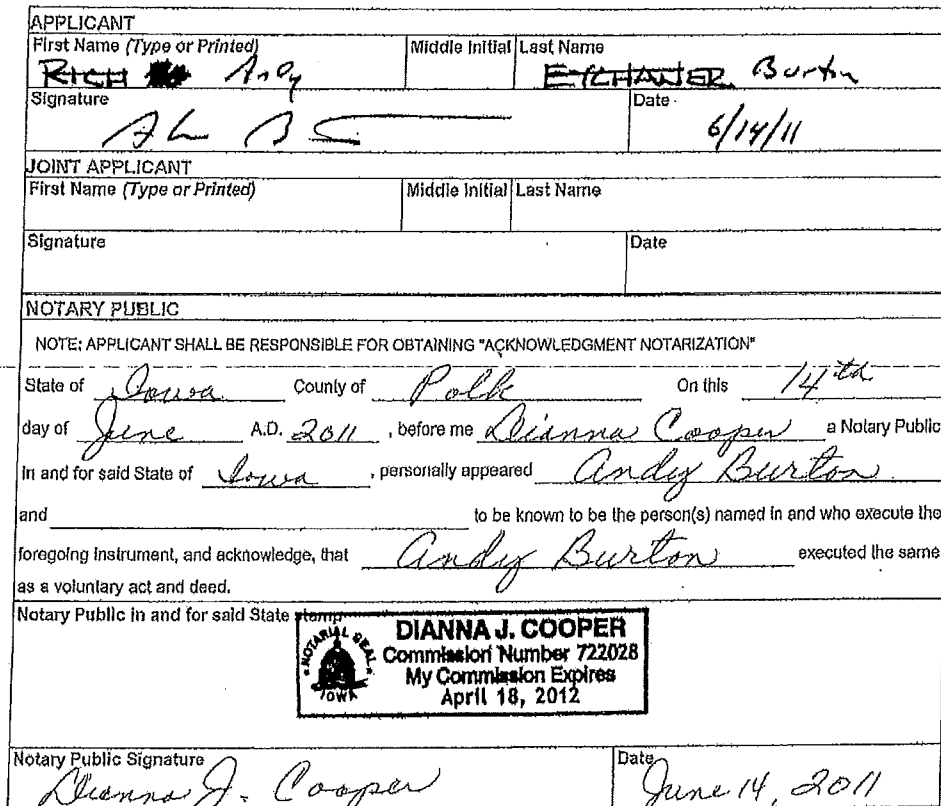 APPLICANT
First Name (Type or Printed) Middle Initial Last Name
RICH Andy EYCHANER Burton
Signature Date
6/14/11
JOINT APPLICANT
First Name (Type or Printed) Middle Initial Last Name
Signature Date
NOTARY PUBLIC
NOTE: APPLICANT SHALL BE RESPONSIBLE FOR OBTAINING "ACKNOWLEDGMENT NOTARIZATION"
State of Iowa County of Polk On this 14th
day of June A.D. 2011 , before me Dianna Cooper a Notary Public
in and for said State of Iowa , personally appeared Andy Burton
and to be known to be the person(s) named in and who execute the
foregoing instrument, and acknowledge, that Andy Burton executed the same
as a voluntary act and deed.
Notary Public in and for said State stamp
NOTARIAL SEAL
IOWA
DIANNA J. COOPER
Commission Number 722028
My Commission Expires
April 18, 2012
Notary Public Signature Date
Dianna J. Cooper June 14, 2011